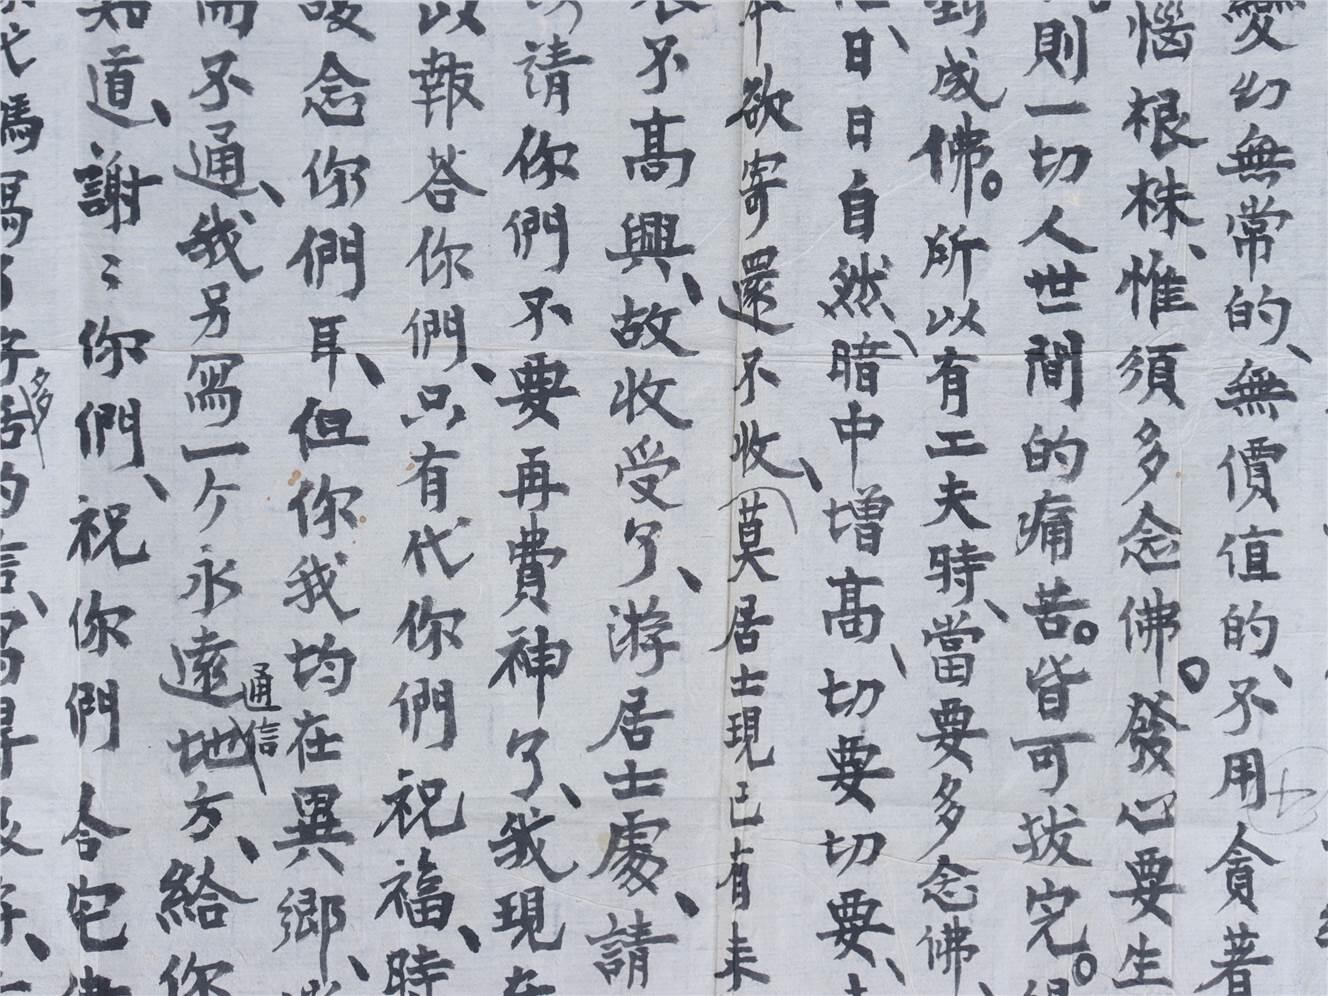 變幻無常的、無價值的、不用貪著
惱根株、惟須多念佛。發心要生
則一切人世間的痛苦。皆可拔完。
到成佛。所以有工夫時、當要多多念佛、
日、日日自然、暗中增高、切要切要、
本欲寄還不收、莫居士現已有未
不高興、故收受了、游居士處、請
請你們不要再費神了、我現在
以報答你們、只有代你們祝福、時
念你們耳、但你我均在異鄉、
而不通、我另寫一个永遠通信地方、給你
知道、謝謝你們、祝你們合宅